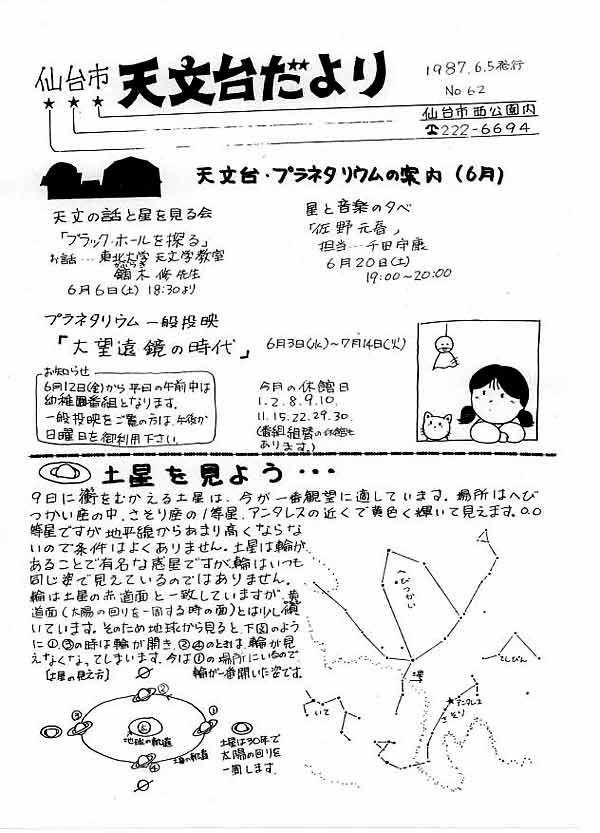 仙台市 天文台だより
1987.6.5発行
No 62
仙台市西公園内
☎222-6694
天文台・プラネタリウムの案内(6月)
天文の話と星を見る会
「ブラック・ホールを探る」
お話…東北大学 天文学教室
鏑木 修 先生
6月6日(土) 18:30より
星と音楽の夕べ
「佐野元春」
担当…千田守康
6月20日(土)
19:00~20:00
プラネタリウム 一般投映
「大望遠鏡の時代」
6月3日(水)~7月14日(火)
お知らせ
6月12日(金)から平日の午前中は
幼稚園番組となります。
一般投映をご覧の方は、午後か
日曜日を御利用下さい。
今月の休館日
1.2.8.9.10.
11.15.22.29.30.
(番組組替の休館も
あります。)
土星を見よう・・・
9日に衝をむかえる土星は、今が一番観望に適しています。場所はへび
つかい座の中、さそり座の1等星、アンタレスの近くで黄色く輝いて見えます。0.0
等星ですが地平線からあまり高くならな
いので条件はよくありません。土星は輪が
あることで有名な惑星ですが、輪はいつも
同じ姿で見えているのではありません。
輪は土星の赤道面と一致していますが、黄
道面(太陽の回りを一周する時の面)とは少し傾
いています。そのため地球から見ると、下図のよう
に①,③の時は輪が開き、②④のときは、輪が見
えなくなってしまいます。今は①の場所にいるので
輪が一番開いた姿です。
[土星の見え方]
②
③
①
地球の軌道
④
土星の軌道
土星は30年で
太陽の回りを
一周します。
へびつかい
土星
てんびん
アンタレス
さそり
いて